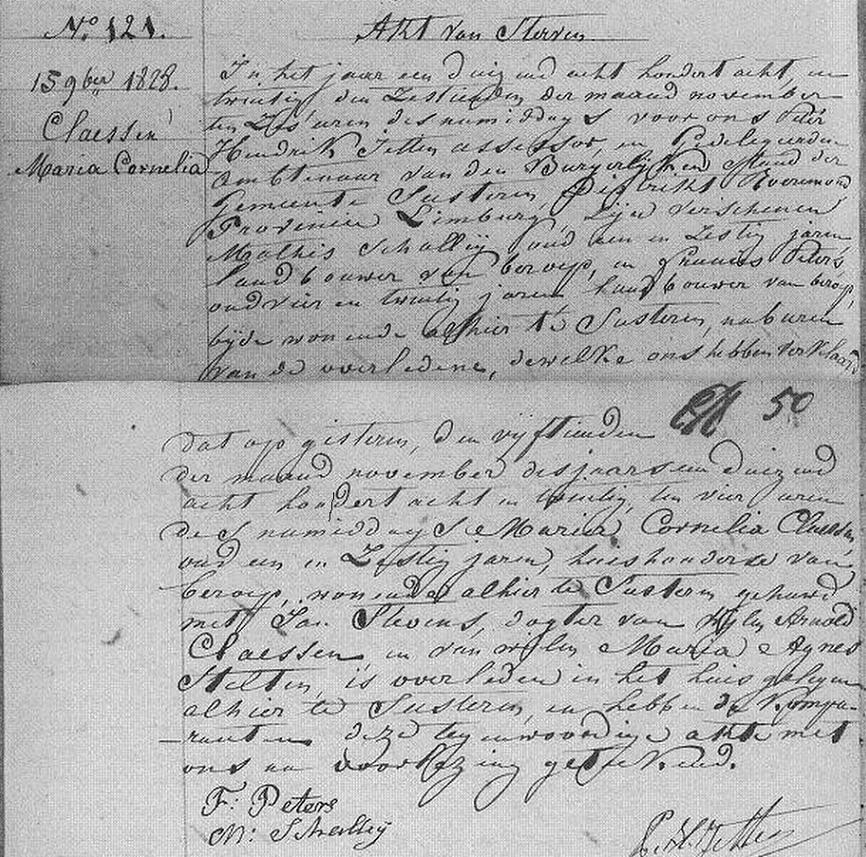 No. 121.
Akt van Sterven
15 9ber 1828.
Claessen
Maria Cornelia
In het jaar een duizend acht hondert acht, en
twintig den Zestienden der maand november
ten Zes uren des namiddags voor ons Peter
Hendrik Jetten assessor, en Gedelegeerden
Ambtenaar van den Burgerlijken Stand der
Gemeente Susteren, Distrikt Roermond,
Provincie Limburg, Zijn verschenen
Mathis Schallij oud een en Zestig jaren
landbouwer van beroep, en Francis Peters,
oud vier en twintig jaren landbouwer van beroep,
bijde wonende alhier te Susteren, naburen
van de overledene, dewelke ons hebben verklaard
50
dat op gisteren, den vijftienden
der maand november des jaars een duizend
acht hondert acht en twintig, ten vier uren
des namiddags Maria Cornelia Claessen,
oud een en Zestig jaren, huishouderse van
beroep, wonende alhier te Susteren gehuwd
met Jan Stevens, dogter van wijlen Arnold
Claessen, en van wijlen Maria Agnes
Stelten, is overleden in het huis gelegen
alhier te Susteren, en hebben de Kompa-
ranten deze tegenwoordige akte met
ons na voorlezing geteekend.
F: Peters
M: Schallij
P. H. Jetten